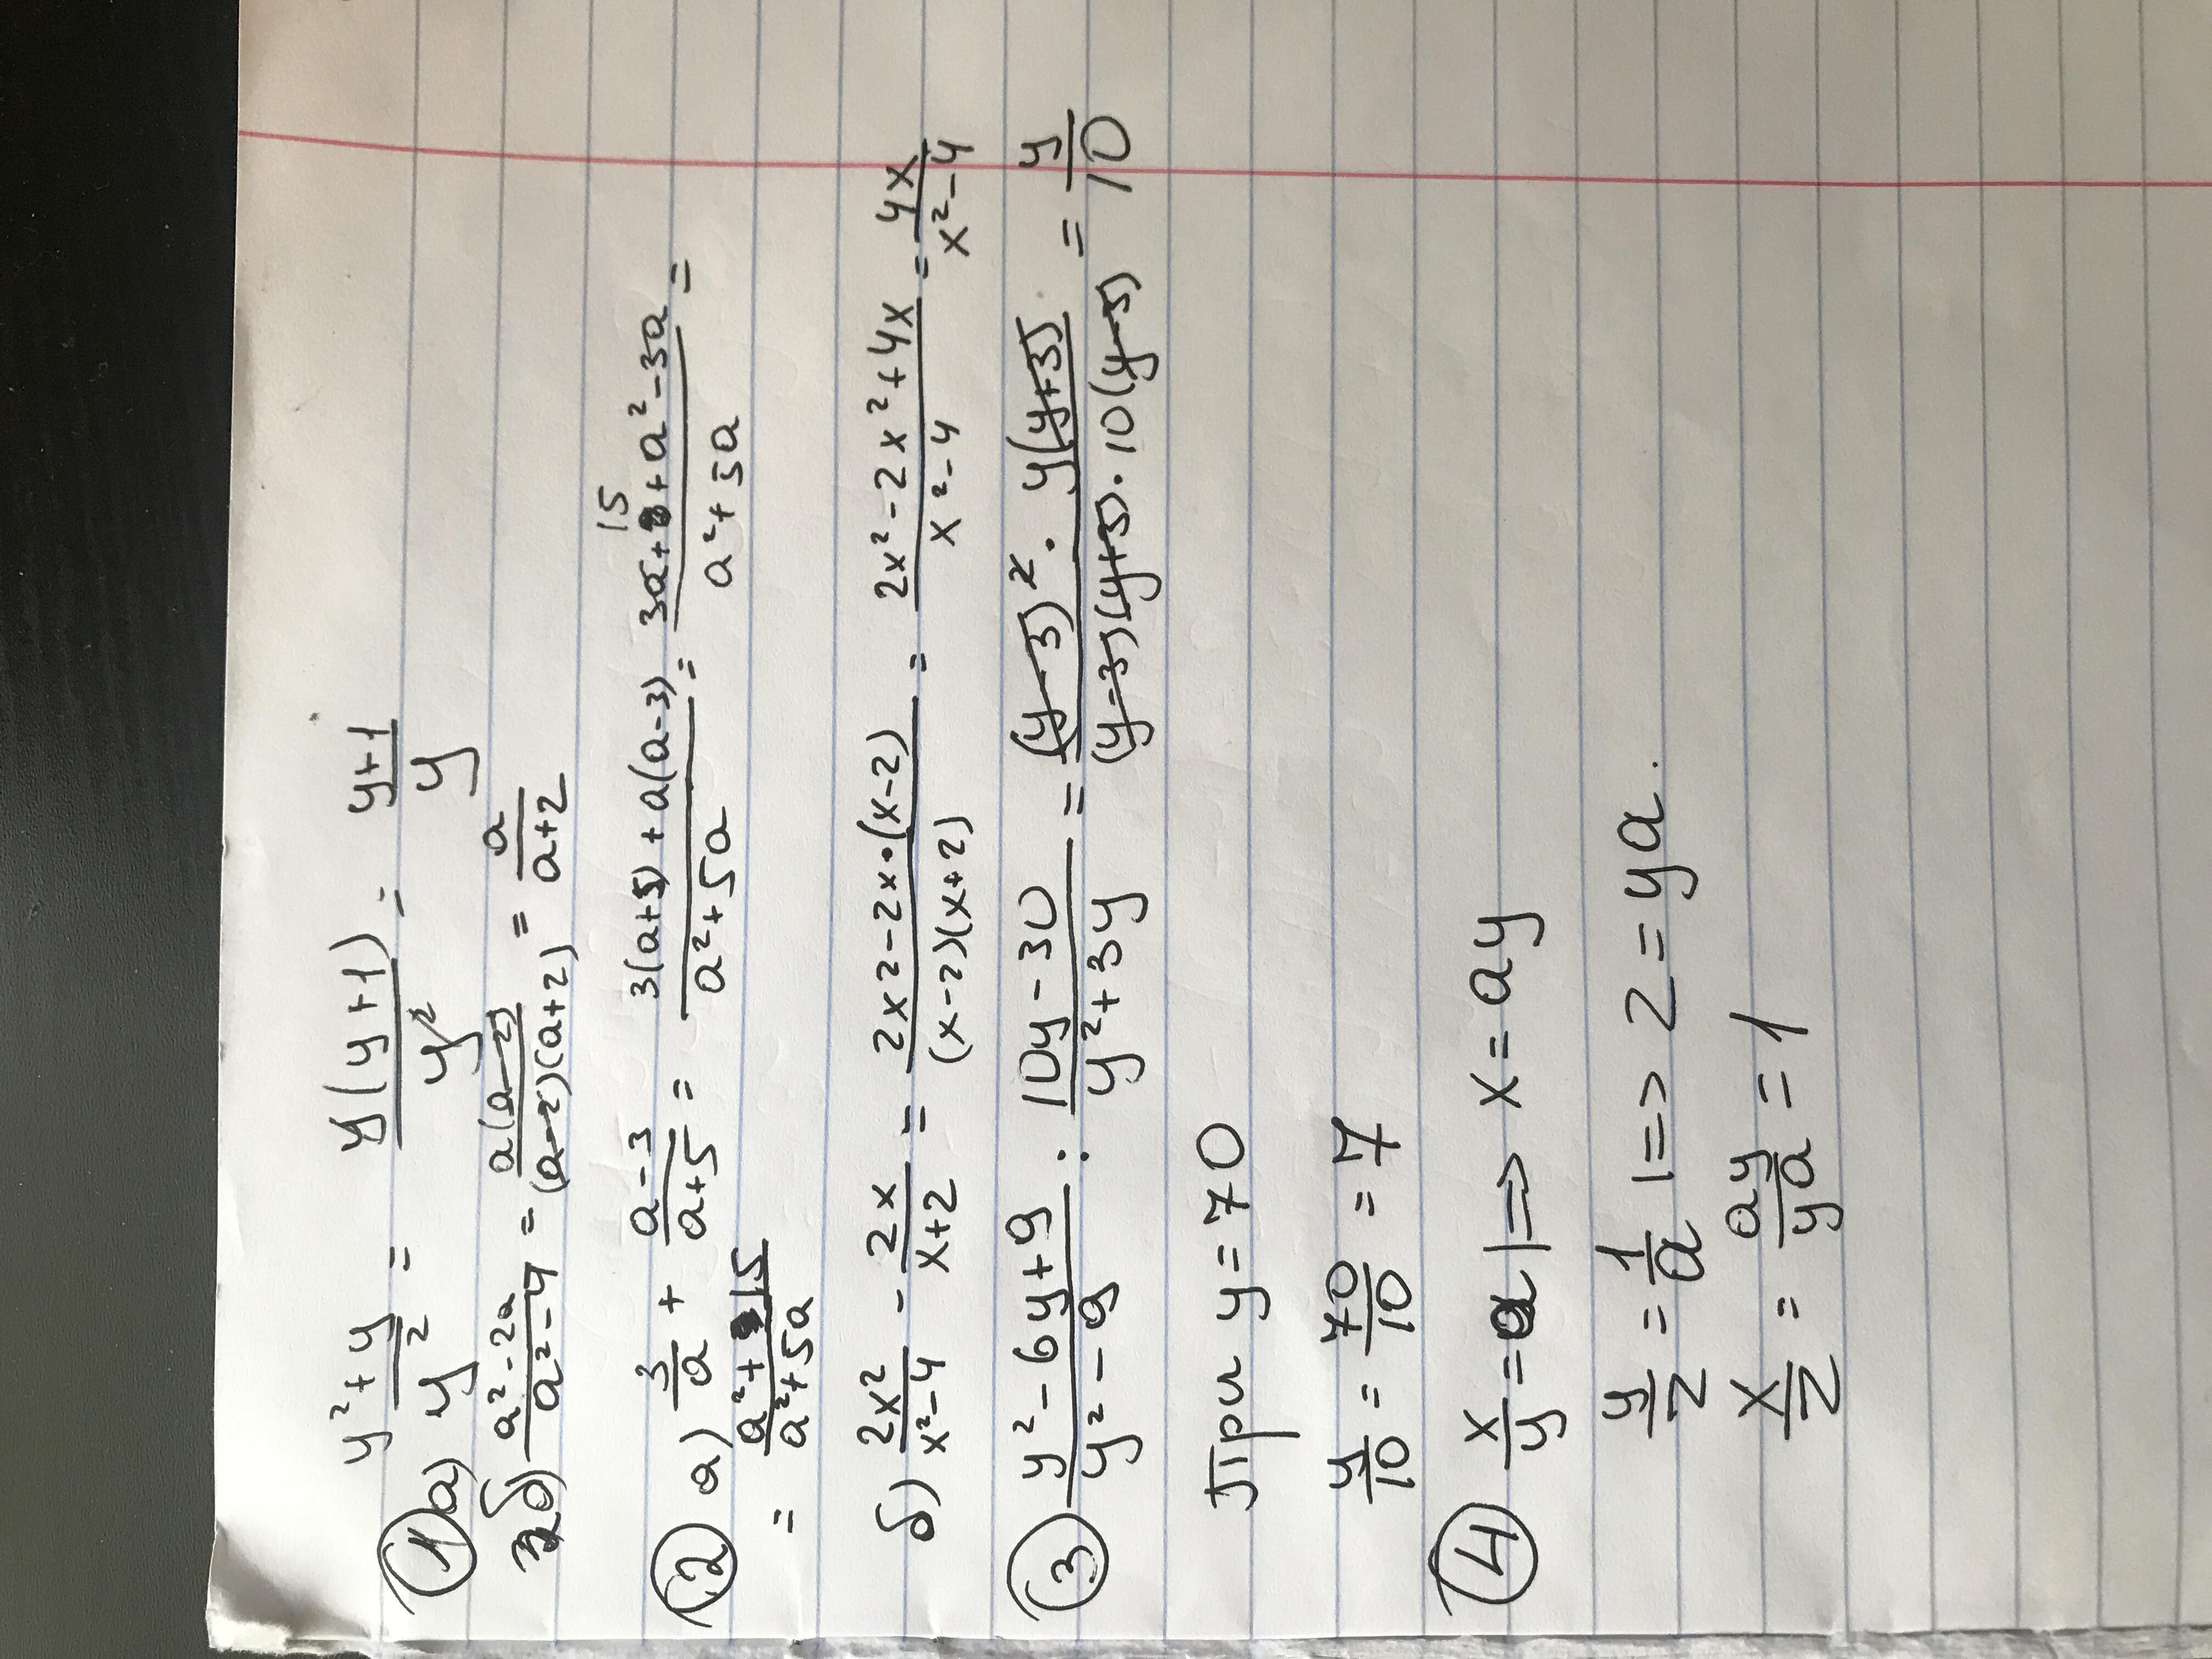 ① а) y²+y/y² = y(y+1)/y² = y+1/y
б) a²-2a/a²-4 = a(a-2)/(a-2)(a+2) = a/a+2
② а) 3/a + a-3/a+5 = 3(a+5)+a(a-3)/a²+5a = 3a+15+a²-3a/a²+5a =
= a²+15/a²+5a
б) 2x²/x²-4 - 2x/x+2 = 2x2-2x·(x-2)/(x-2)(x+2) = 2x²-2x²+4x/x²-4 = 4x/x²-4
③ y²-6y+9/y²-9 : 10y-30/y²+3y = (y-3)²·y(y+3)/(y-3)(y+3)·10(y-3) = y/10
При y=70
y/10 = 70/10 = 7
④ x/y=a |=> x=ay
y/z = 1/a 1=> z=ya.
x/z = ay/ya = 1